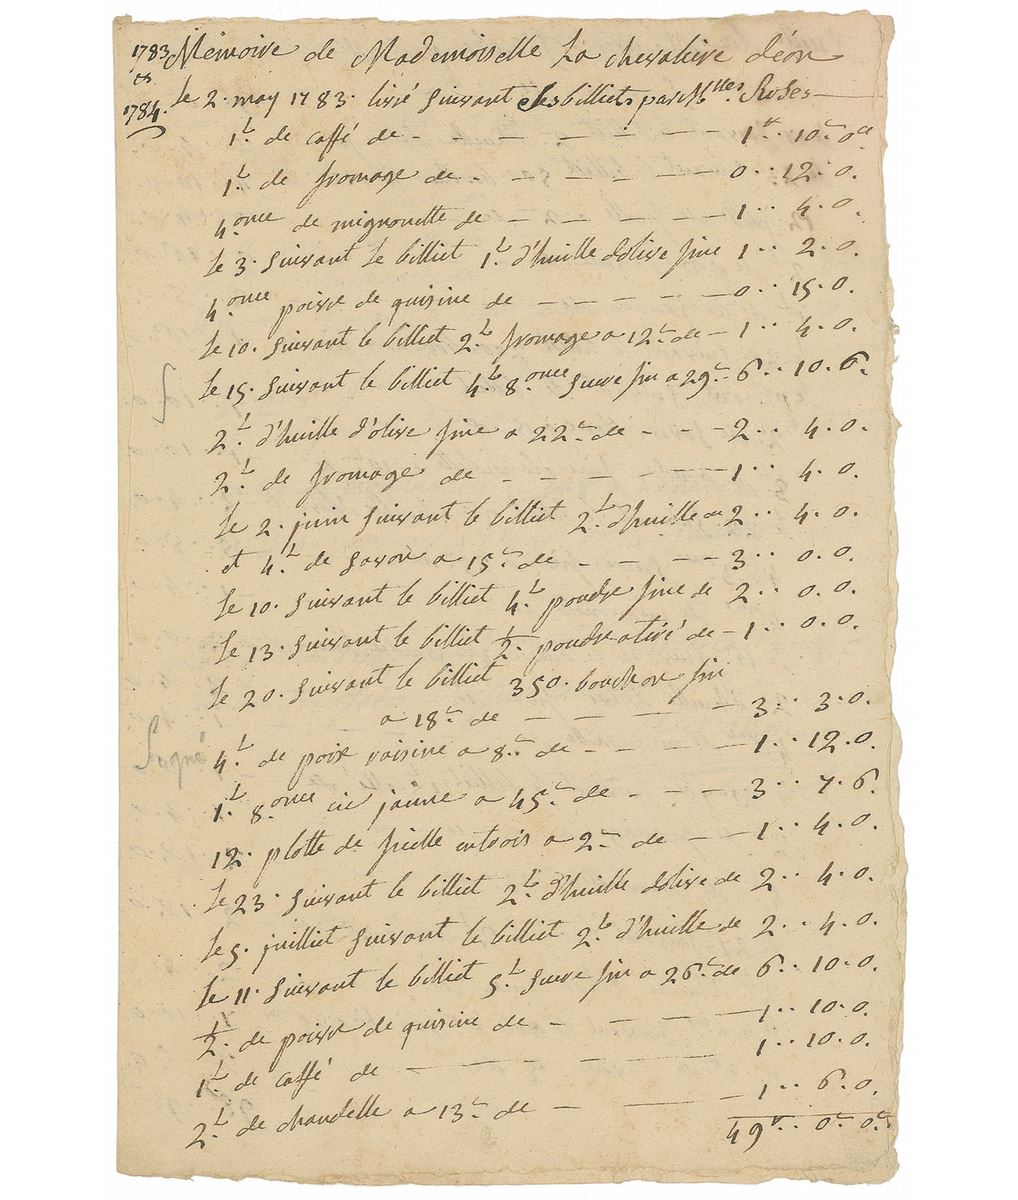 1783 Mémoire de Mademoiselle La chevaliere déon
et
1784. le 2. may 1783. livré suivant les billiets par Mlles Roses
1.L de caffé de - - - - - 1# 10s 0d
1.L de fromage de - - - - - 0.. 12. 0.
4.once de mignonette de - - - - 1.. 4. 0.
le 3. suivant le billiet 1.L d'huille dolive fine 1.. 2. 0.
4.once poivre de quisine de - - - - 0.. 15. 0.
le 10. suivant le billiet 2.L fromage a 12s de - 1.. 4. 0.
le 15. suivant le billiet 4.L 8.once sucre fin a 29s 6.. 10. 6.
2.L d'huille d'olive fine a 22s de - - - 2.. 4. 0.
2.L de fromage de - - - - 1.. 4. 0.
le 2. juin suivant le billiet 2.L d'huille de 2.. 4. 0.
et 4.L de savon a 15s de - - - - 3.. 0. 0.
le 10. suivant le billiet 4.L poudre fine de 2.. 0. 0.
le 13. suivant le billiet 1/2. poudre de - 1.. 0. 0.
le 20. suivant le billiet 350. bouchon fin
a 18s de - - - - - 3.. 3. 0.
4.L de poix raisine a 8s de - - - 1.. 12. 0.
1.L 8.once cie jaune a 45s de - - - 3.. 7. 6.
12. plotte de ficelle a 2s de - - 1.. 4. 0.
le 23. suivant le billiet 2.L d'huille dolive de 2.. 4. 0.
le 5. juilliet suivant le billiet 2.L d'huille de 2.. 4. 0.
le 11. suivant le billiet 5.L sucre fin a 26s de 6.. 10. 0.
1/2. de poivre de quisine de - - - - 1.. 10. 0.
1.L de caffé de - - - - 1.. 10. 0.
2.L de chandelle a 13s de - - 1.. 6. 0.
49#.. 0s 0d